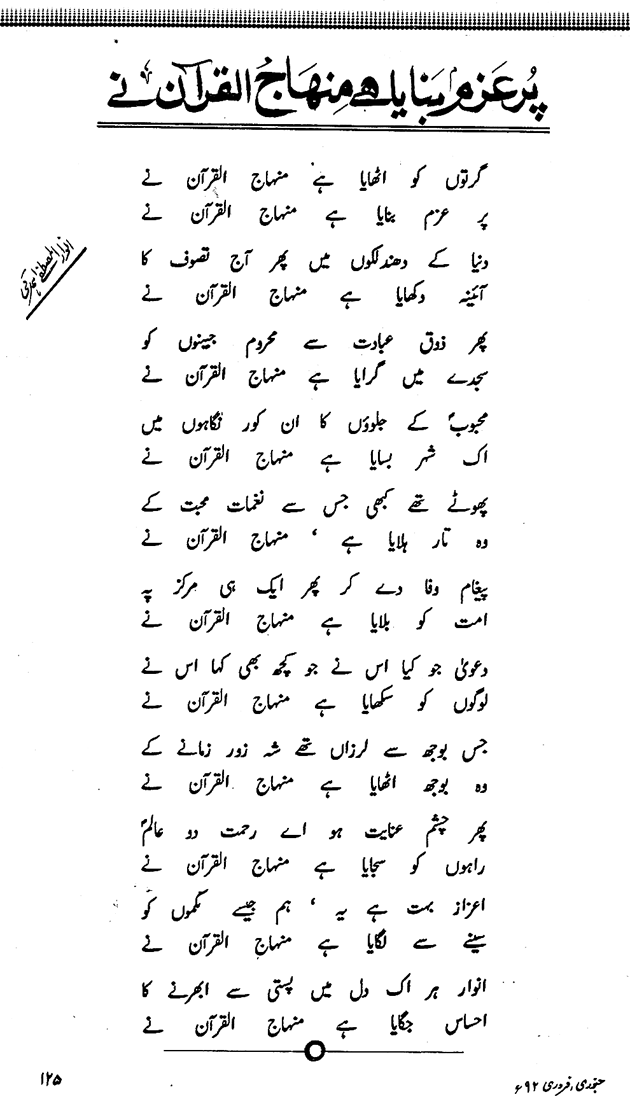 پُر عَزم بنایا ہے مِنہاجُ القرآن نے
گرتوں کو اٹھایا ہے منہاج القرآن نے
پر عزم بنایا ہے منہاج القرآن نے
دنیا کے دھندلکوں میں پھر آج تصوف کا
آئینہ دکھایا ہے منہاج القرآن نے
پھر ذوق عبادت سے محروم جبینوں کو
سجدے میں گرایا ہے منہاج القرآن نے
محبوبؐ کے جلوؤں کا ان کور نگاہوں میں
اک شہر بسایا ہے منہاج القرآن نے
پھوٹے تھے کبھی جس سے نغمات محبت کے
وہ تار ہلایا ہے ‘ منہاج القرآن نے
پیغام وفا دے کر پھر ایک ہی مرکز پہ
امت کو بلایا ہے منہاج القرآن نے
دعویٰ جو کیا اس نے جو کچھ بھی کہا اس نے
لوگوں کو سکھایا ہے منہاج القرآن نے
جس بوجھ سے لرزاں تھے شہ زور زمانے کے
وہ بوجھ اٹھایا ہے منہاج القرآن نے
پھر چشم عنایت ہو اے رحمت دو عالمؐ
راہوں کو سجایا ہے منہاج القرآن نے
اعزاز بہت ہے یہ ‘ ہم جیسے نکموں کو
سینے سے لگایا ہے منہاج القرآن نے
انوار ہر اک دل میں پستی سے ابھرنے کا
احساس جگایا ہے منہاج القرآن نے
جنوری، فروری ۹۲ء
۱۲۵